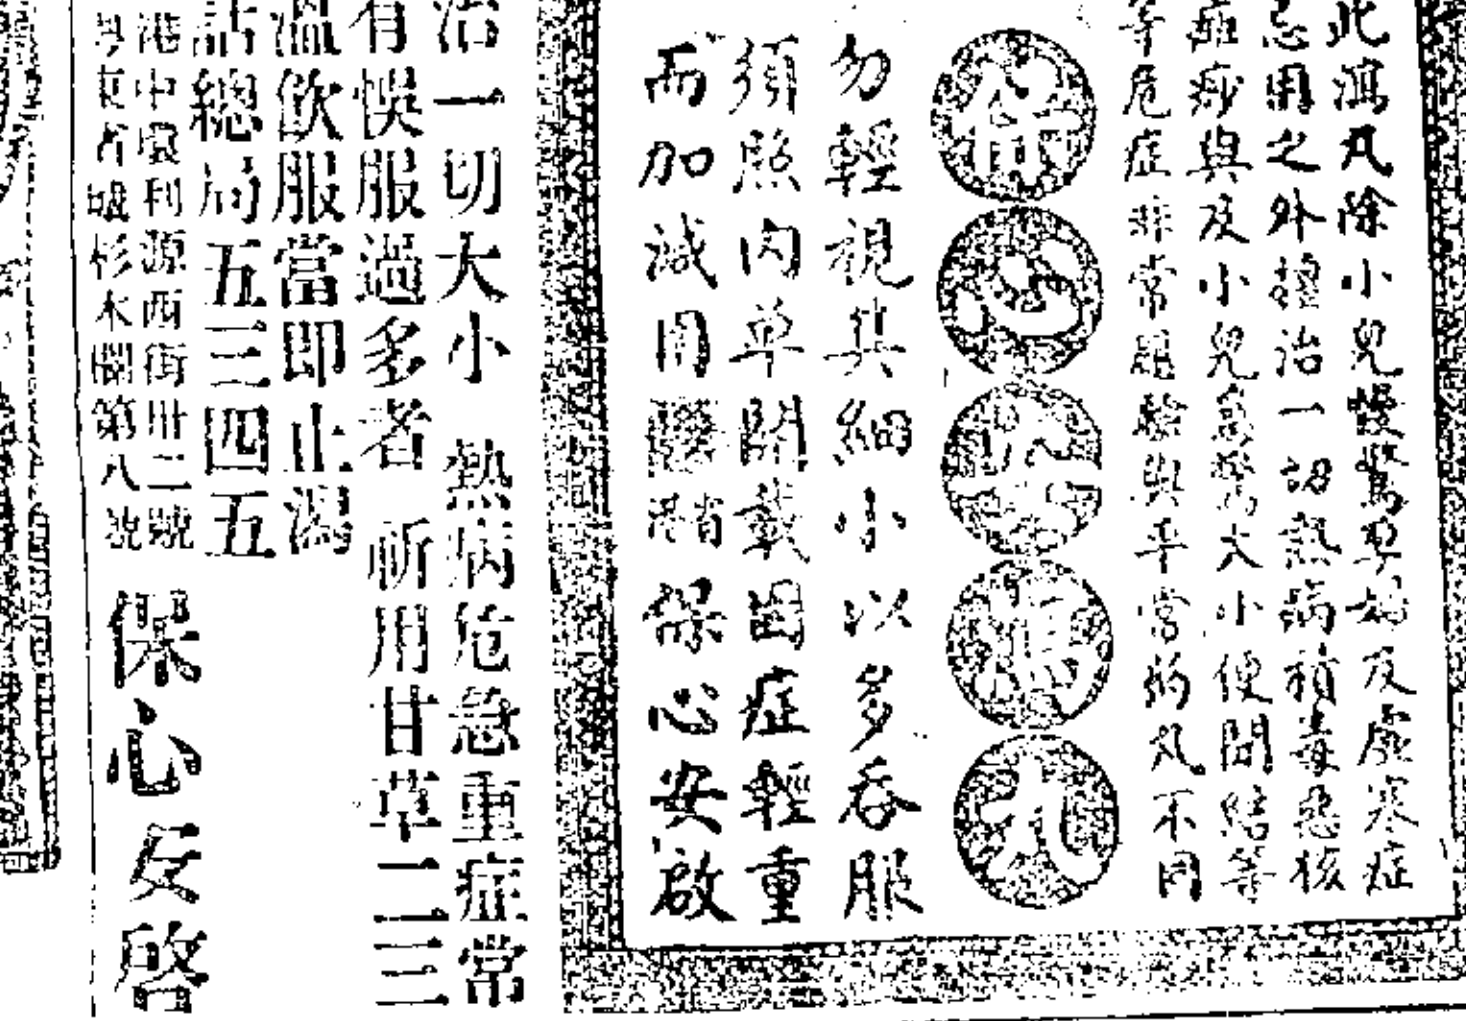 此瀉丸除小兒慢驚孕婦及虛寒症
忌用之外擅治一切熱病積毒惡核
痧與及小兒急驚大小便閉結等
等危症非常題驗與平常的丸不同
保心丸
勿輕視其細小以多吞服
須照內单開載因症輕重
而加減用 保心安啟
治一切大小熱病危急重症常
有悞服過多者祈用甘草二三
溫飲服當即止瀉
話總局五三四五
港中環利源西街卅二號
粤東省城杉木欄第八號
保心安啓